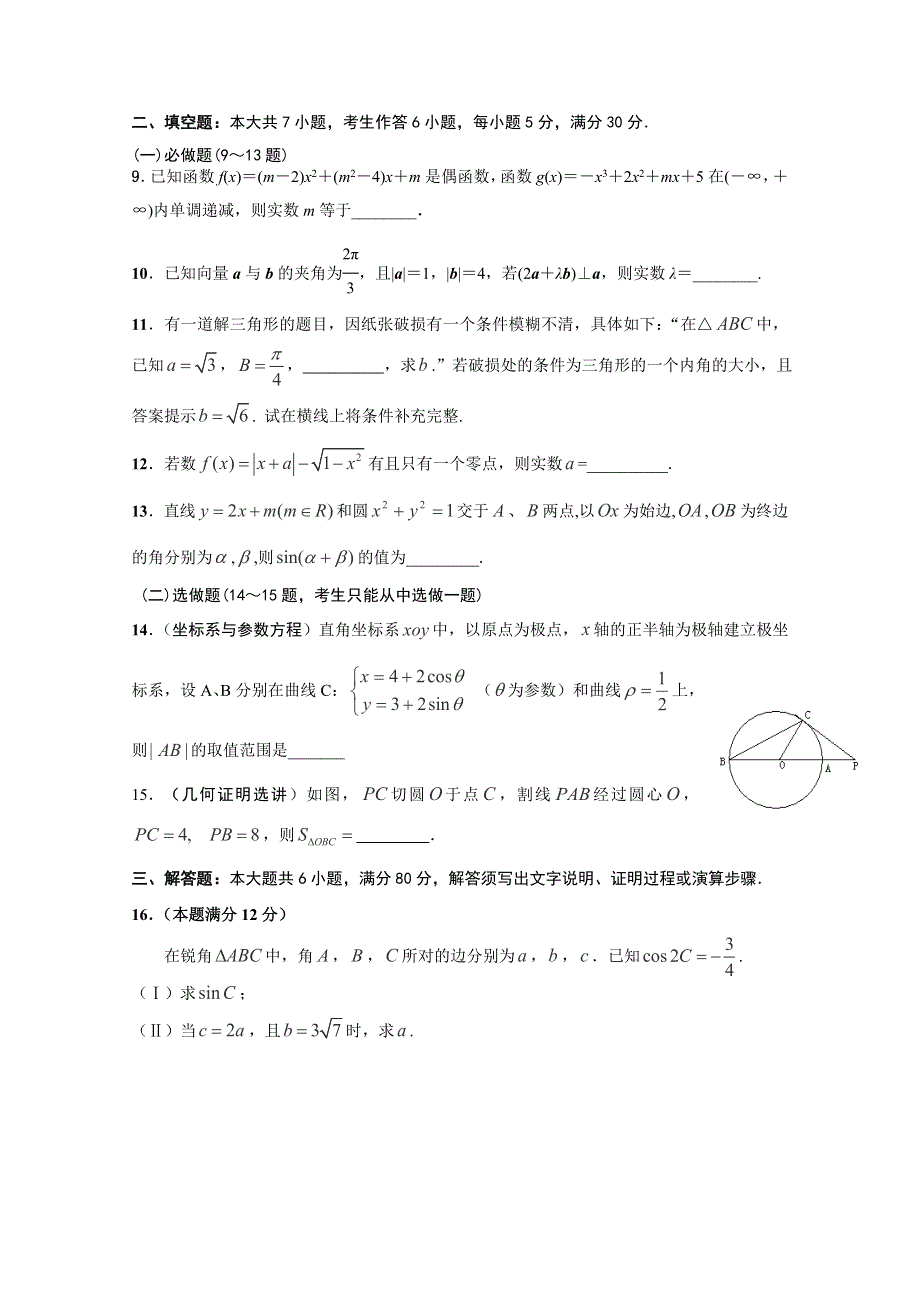 二、填空题：本大共 7 小题，考生作答 6 小题，每小题 5 分，满分 30 分．
(一)必做题(9～13 题)
9．已知函数 f(x)＝(m－2)x²＋(m²－4)x＋m 是偶函数，函数 g(x)＝－x³＋2x²＋mx＋5 在(－∞，＋
∞)内单调递减，则实数 m 等于________．
10．已知向量 a 与 b 的夹角为2π/3，且|a|＝1，|b|＝4，若(2a＋λb)⊥a，则实数 λ＝________.
11．有一道解三角形的题目，因纸张破损有一个条件模糊不清，具体如下：“在△ABC 中，
已知 a=√3，B=π/4，__________，求 b.”若破损处的条件为三角形的一个内角的大小，且
答案提示 b=√6. 试在横线上将条件补充完整.
12．若数 f(x)=|x+a|−√(1−x²) 有且只有一个零点，则实数 a =__________.
13．直线 y=2x+m(m∈R) 和圆 x²+y²=1 交于 A、B 两点,以 Ox 为始边,OA,OB 为终边
的角分别为 α,β,则 sin(α+β) 的值为_________.
(二)选做题(14～15 题，考生只能从中选做一题)
14．（坐标系与参数方程）直角坐标系 xoy 中，以原点为极点，x 轴的正半轴为极轴建立极坐
标系，设 A、B 分别在曲线 C：{x=4+2cosθ y=3+2sinθ （θ 为参数）和曲线 ρ=1/2 上，
则| AB |的取值范围是_______
C
B
O
A
P
15．（几何证明选讲）如图，PC 切圆 O 于点 C，割线 PAB 经过圆心 O，
PC=4, PB=8，则 S△OBC =_________．
三、解答题：本大题共 6 小题，满分 80 分，解答须写出文字说明、证明过程或演算步骤．
16．（本题满分 12 分）
在锐角ΔABC 中，角 A，B，C 所对的边分别为 a，b，c．已知 cos2C=−3/4．
（Ⅰ）求 sin C；
（Ⅱ）当 c=2a，且 b=3√7 时，求 a．